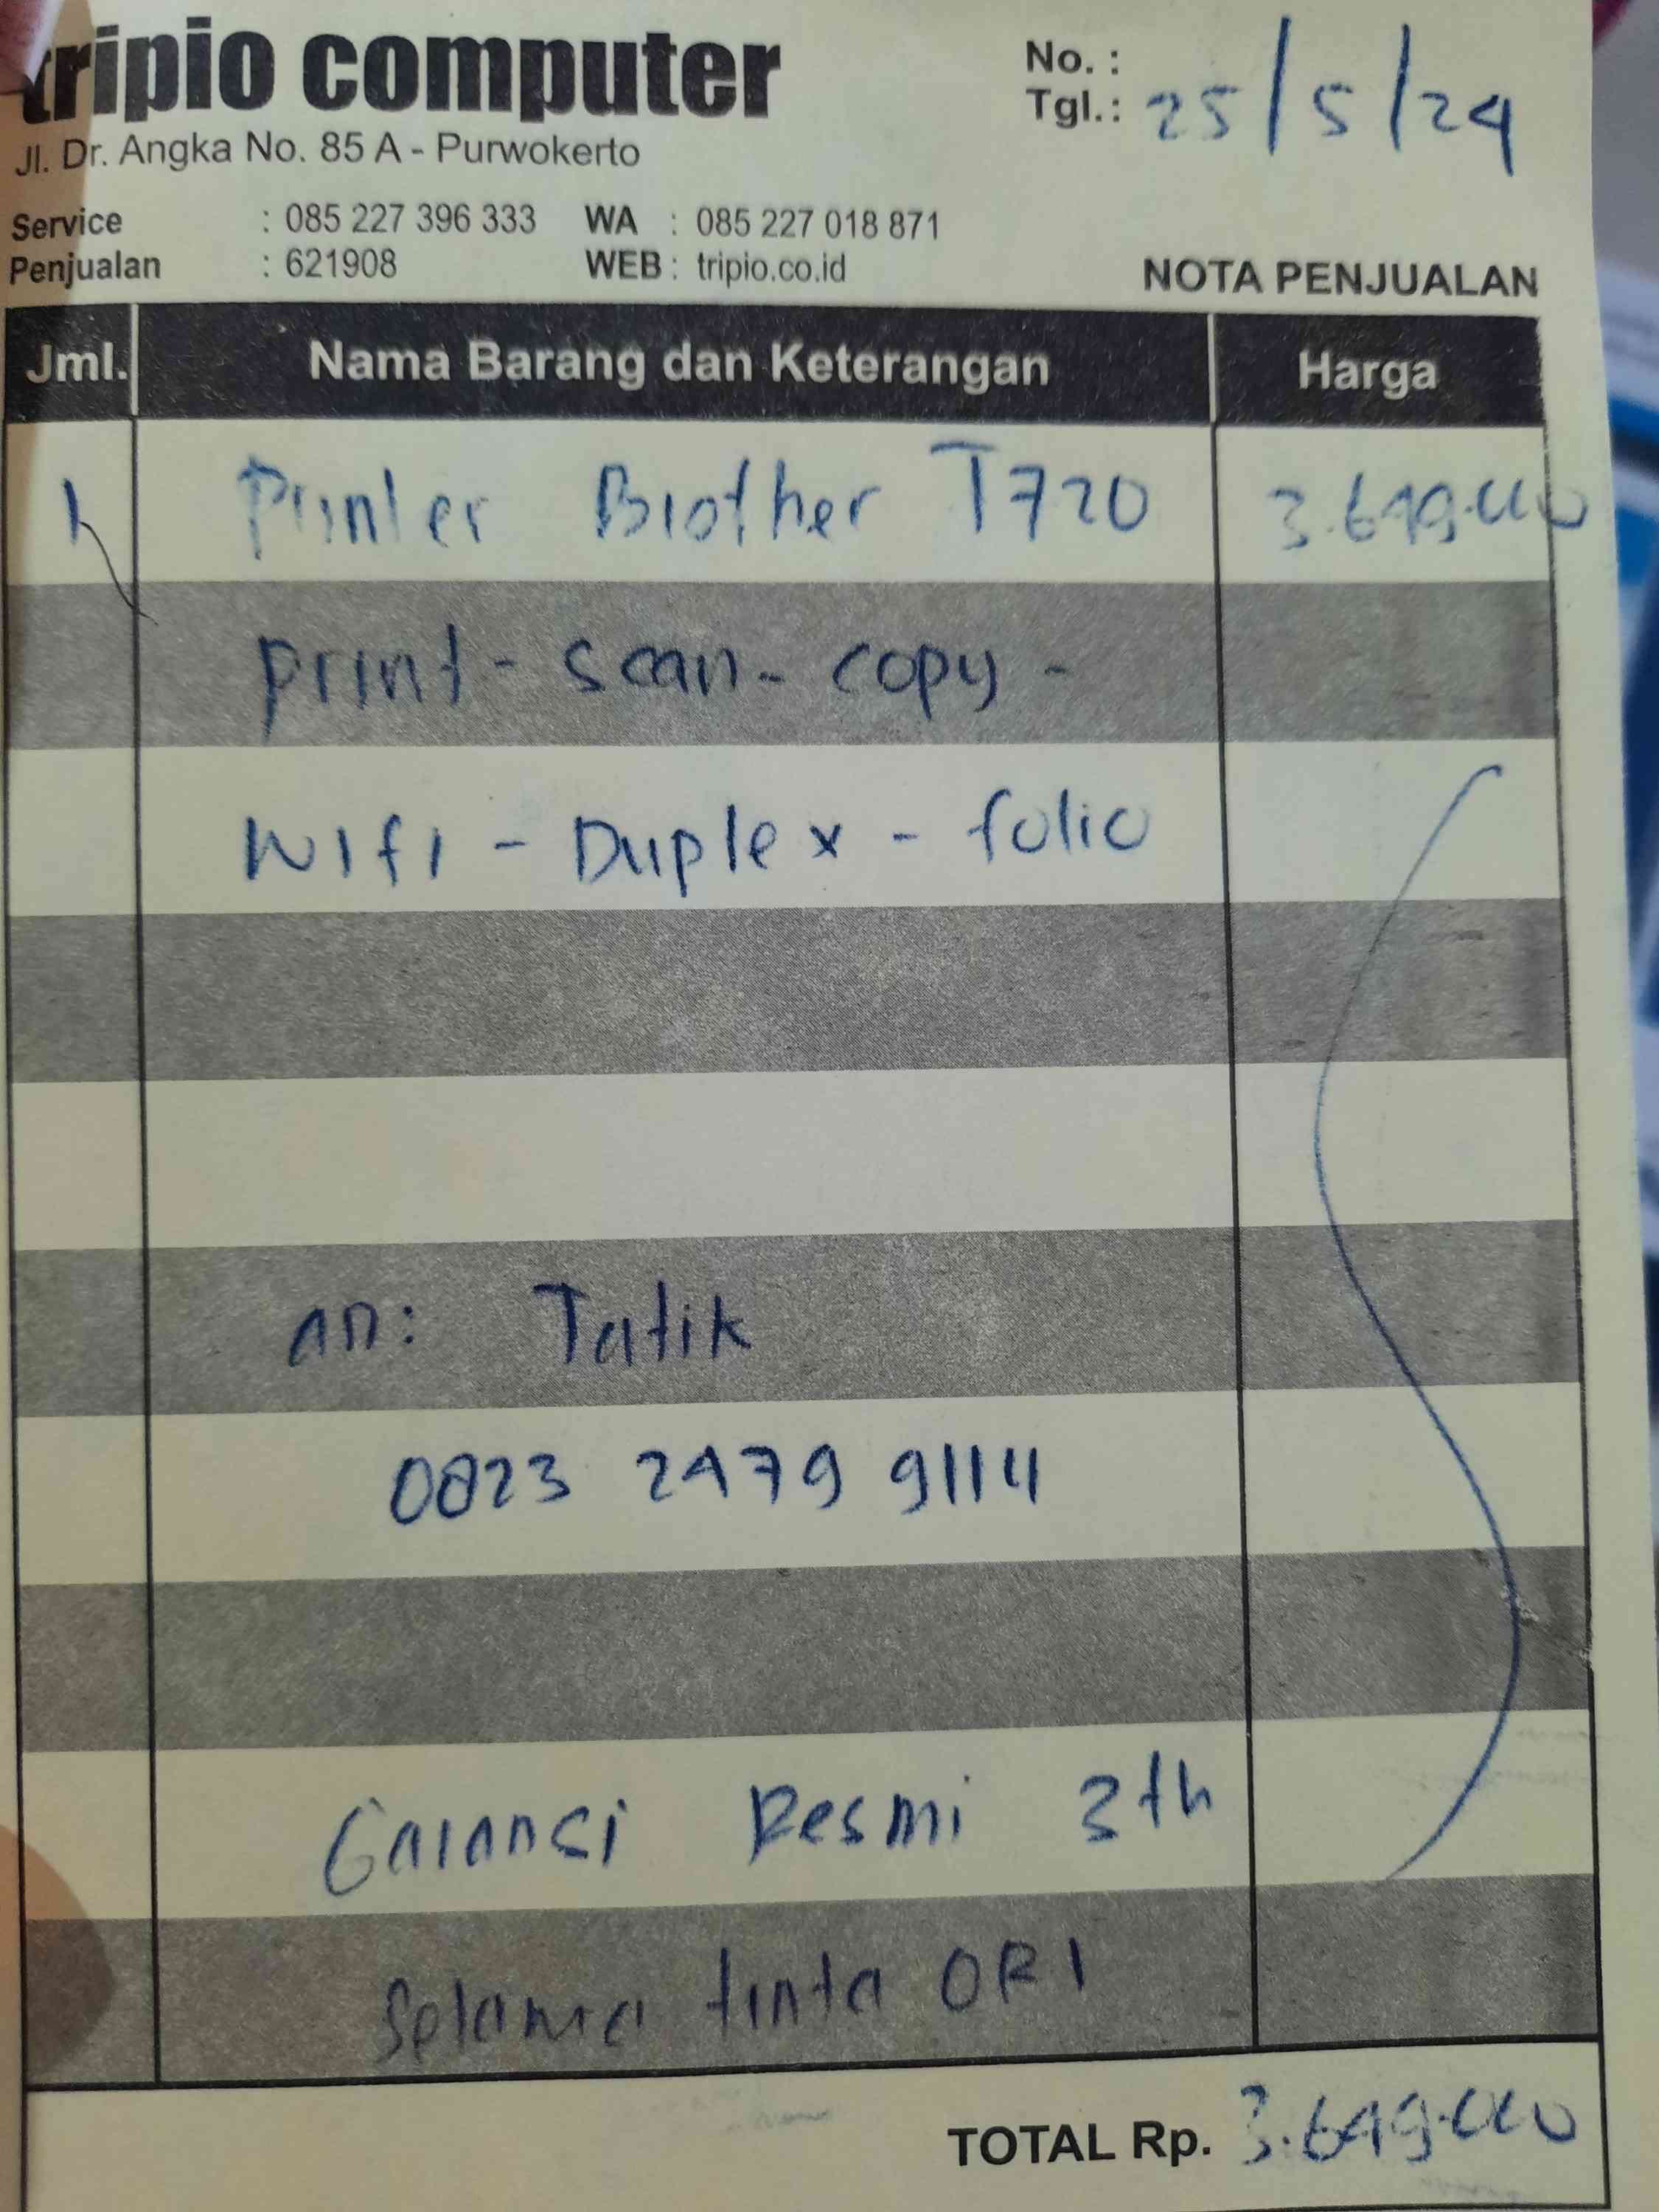 tripio computer
Jl. Dr. Angka No. 85 A - Purwokerto
No. :
Tgl.: 25/5/24
Service : 085 227 396 333 WA : 085 227 018 871
Penjualan : 621908 WEB : tripio.co.id
NOTA PENJUALAN
Jml. Nama Barang dan Keterangan Harga
1 Printer Brother T720 3.649.000
print - scan - copy -
Wifi - Duplex - folio
an: Tatik
0823 2479 9114
Garansi Resmi 3th
Selama tinta ORI
TOTAL Rp. 3.649.000